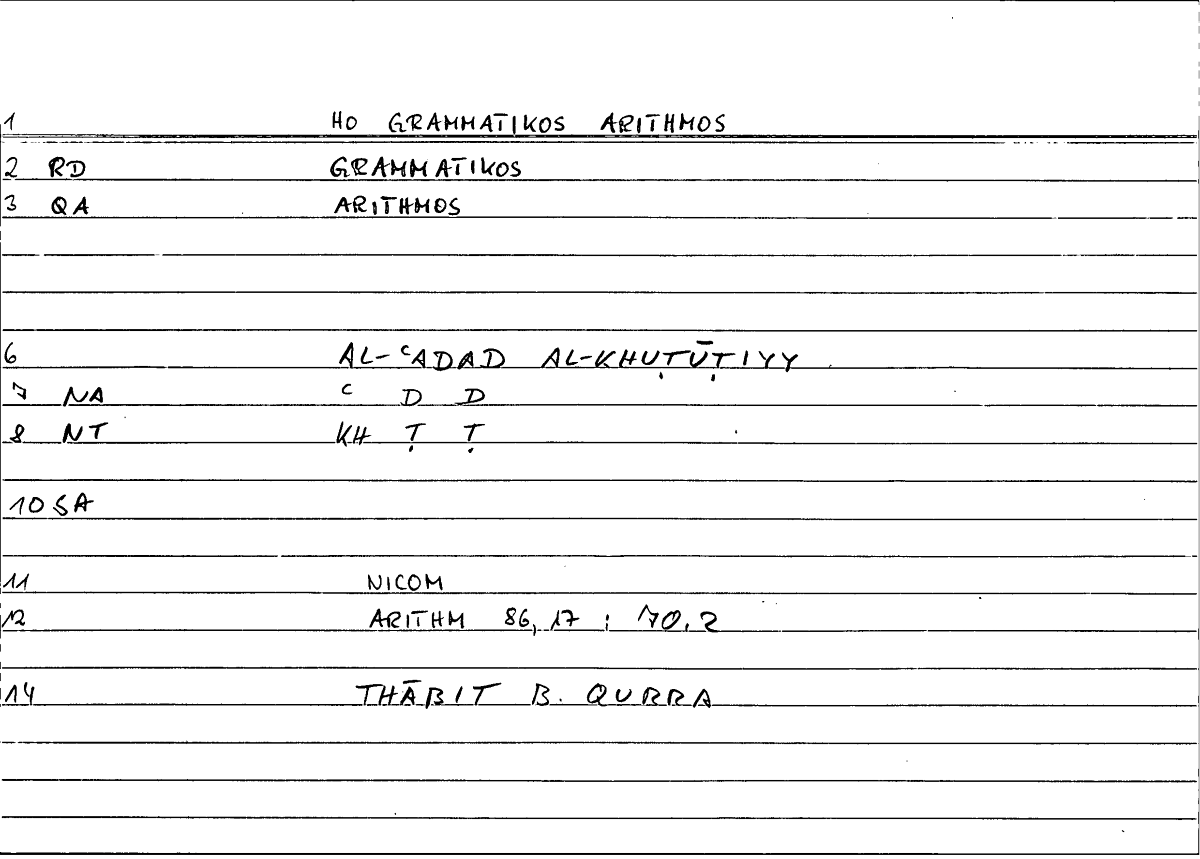 1 HO GRAMMATIKOS ARITHMOS
2 RD GRAMMATIKOS
3 QA ARITHMOS
6 AL-ᶜADAD AL-KHUṬŪṬIYY
7 NA ᶜ D D
8 NT KH Ṭ Ṭ
10 SA
11 NICOM
12 ARITHM 86,17 ; 70.2
14 THĀBIT B. QURRA